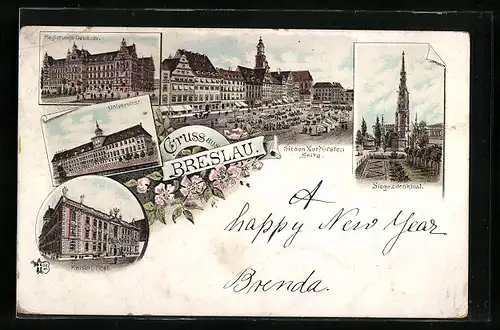 Regierungs Gebäude.
Universität.
Gruss aus
BRESLAU.
Sieben Kurfürsten
Seite.
Siegesdenkmal.
Kaiserl. Post.
A
happy New Year
Brenda.